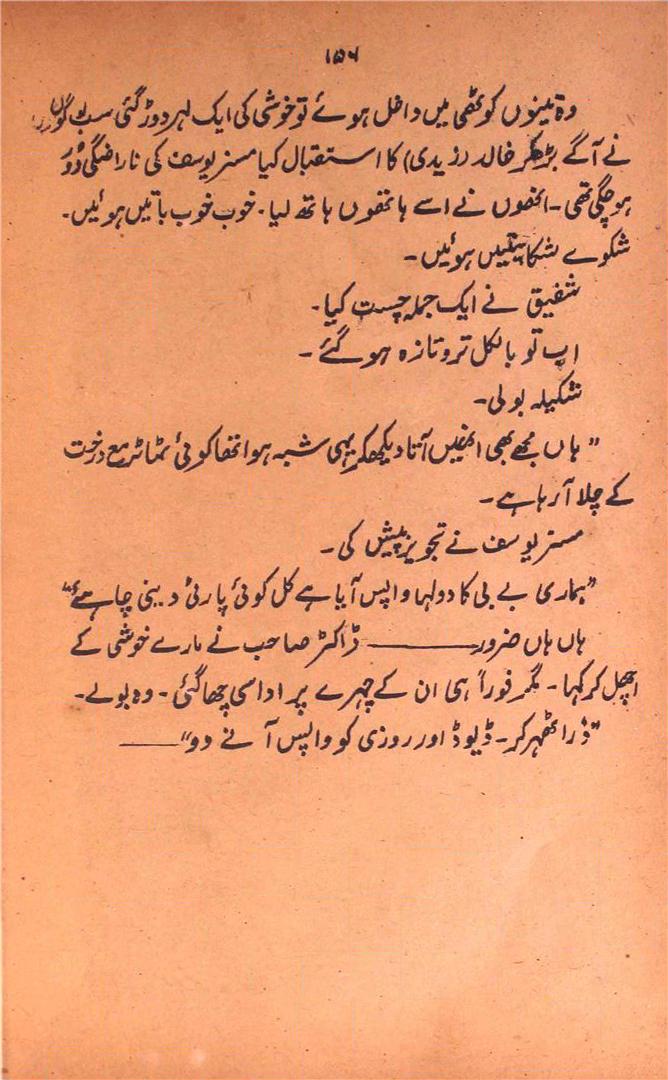 ۱۵۶
وہ تینوں کوٹھی میں داخل ہوئے تو خوشی کی ایک لہر دوڑ گئی سب لوگوں
نے آگے بڑھکر خالد زیدی) کا استقبال کیا مسز یوسف کی ناراضگی دُور
ہو چکی تھی۔ انھوں نے اسے ہاتھوں ہاتھ لیا۔ خوب خوب باتیں ہوئیں۔
شکوے شکایتیں ہوئیں۔
شفیق نے ایک جملہ چست کیا۔
اپ تو بالکل تروتازہ ہو گئے۔
شکیلہ بولی۔
"ہاں مجھے بھی انھیں آتا دیکھکر یہی شبہ ہوا تھا کوئی ٹماٹر مع درخت
کے چلا آرہا ہے۔
مسز یوسف نے تجویز پیش کی۔
"ہماری بے بی کا دولہا واپس آیا ہے کل کوئی پارٹی دینی چاہئے"
ہاں ہاں ضرور ——— ڈاکٹر صاحب نے مارے خوشی کے
اچھل کر کہا۔ مگر فوراً ہی ان کے چہرے پر اداسی چھا گئی۔ وہ بولے۔
"ذرا ٹھہر کر۔ ڈیوڈ اور روزی کو واپس آنے دو" ——